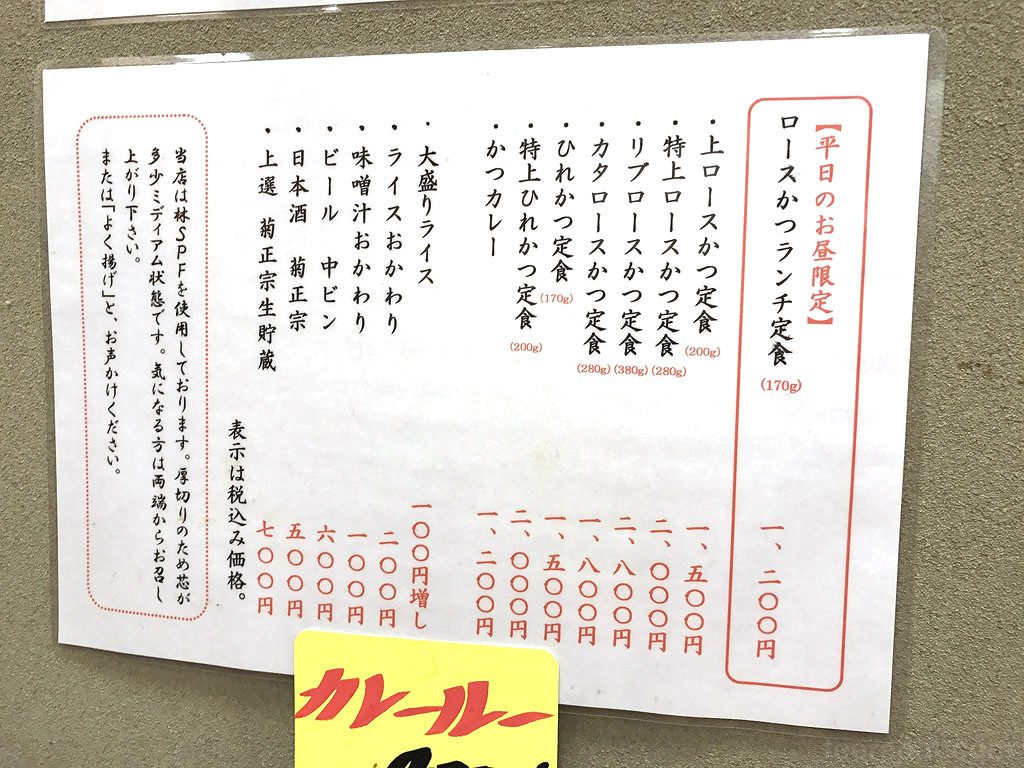 【平日のお昼限定】
ロースかつランチ定食(170g) 一、二〇〇円
・上ロースかつ定食(200g) 一、五〇〇円
・特上ロースかつ定食(280g) 二、〇〇〇円
・リブロースかつ定食(380g) 二、八〇〇円
・カタロースかつ定食(280g) 一、八〇〇円
・ひれかつ定食(170g) 一、五〇〇円
・特上ひれかつ定食(200g) 二、〇〇〇円
・かつカレー 一、二〇〇円
・大盛りライス 一〇〇円増し
・ライスおかわり 二〇〇円
・味噌汁おかわり 一〇〇円
・ビール 中ビン 六〇〇円
・日本酒 菊正宗 五〇〇円
・上選 菊正宗生貯蔵 七〇〇円
表示は税込み価格。
当店は林SPFを使用しております。厚切りのため芯が
多少ミディアム状態です。気になる方は両端からお召し
上がり下さい。
または「よく揚げ」と、お声かけください。
カレールー